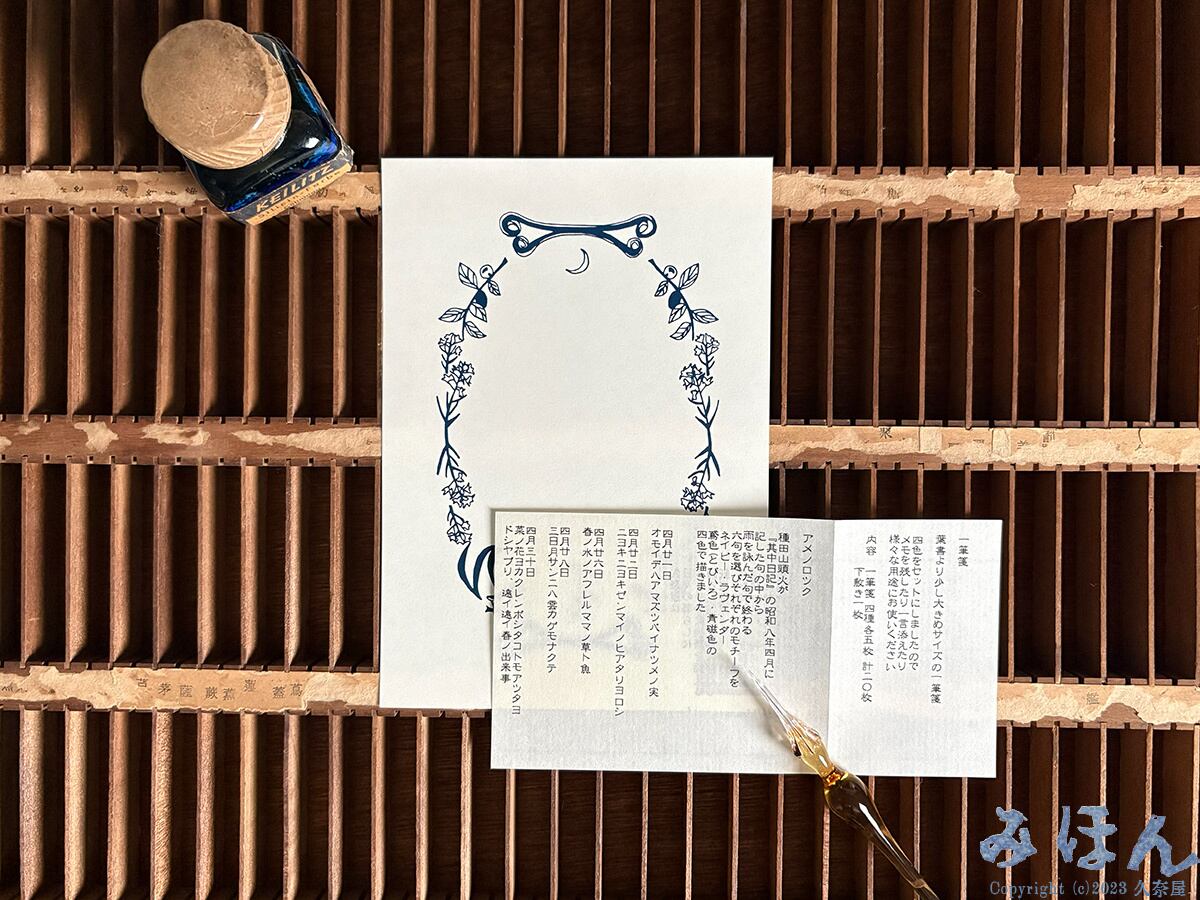 KEILITZ
一筆箋
葉書より少し大きめサイズの一筆箋
四色をセットにしましたので
メモを残したり一言添えたり
様々な用途にお使いください
内容　一筆箋 四種各五枚 計二〇枚
下敷き一枚
アメノロック
種田山頭火が
『其中日記』の昭和八年四月に
記した句の中から
雨を詠んだ句で終わる
六句を選びそれぞれのモチーフを
ネイビー・ラヴェンダー
鳶色(とびいろ)・青磁色の
四色で描きました
四月廿一日
オモイデハアマズツパイナツメノ実
四月廿二日
ニヨキニヨキゼンマイノヒアタリヨロシ
四月廿六日
春ノ水ノアフレルママノ草ト魚
四月廿八日
三日月サン二ハ雲カゲモナクテ
四月三十日
菜ノ花ヨカクレンボシタコトモアツタヨ
ドシヤブリ 遠イ遠イ春ノ出来事
芭 茅 薩 蕨 蔦 蓮 蓄 蔦
みほん
Copyright (c)2023 久奈屋